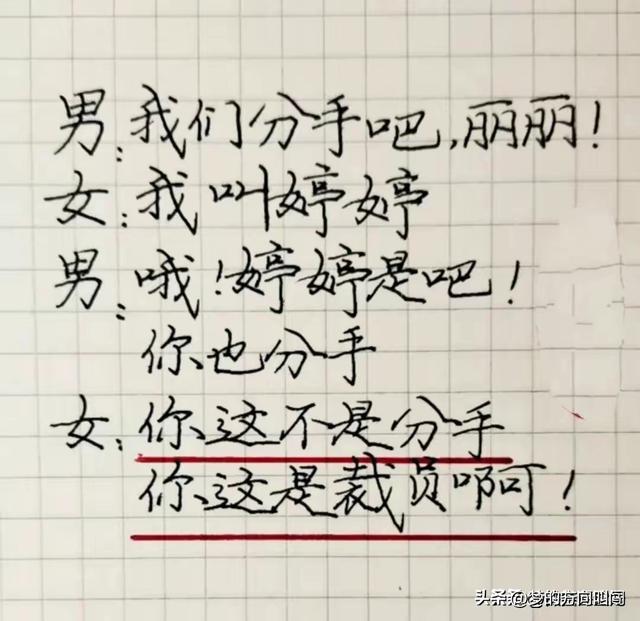 男:我们分手吧,丽丽!
女:我叫婷婷
男:哦!婷婷是吧!
你也分手
女:你这不是分手
你这是裁员啊!
头条